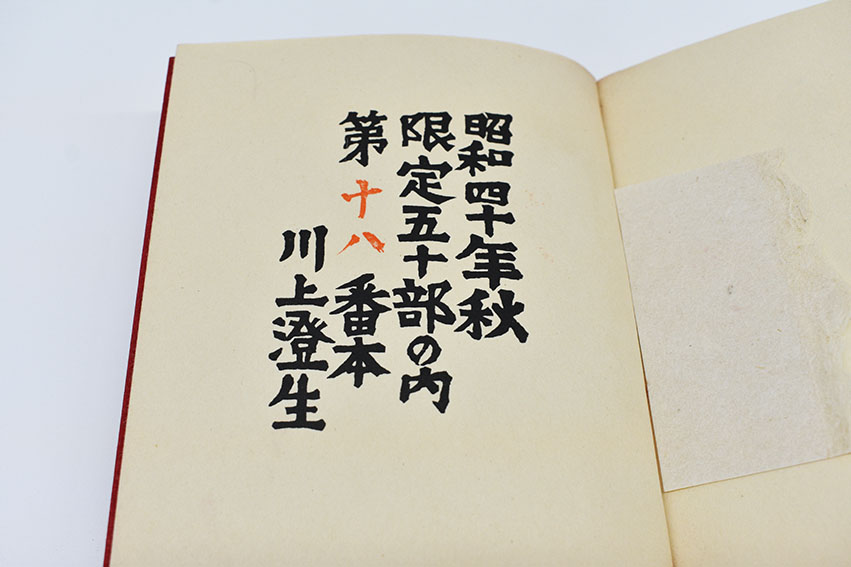 昭和四十年秋
限定五十部の内
第十八番本
川上澄生